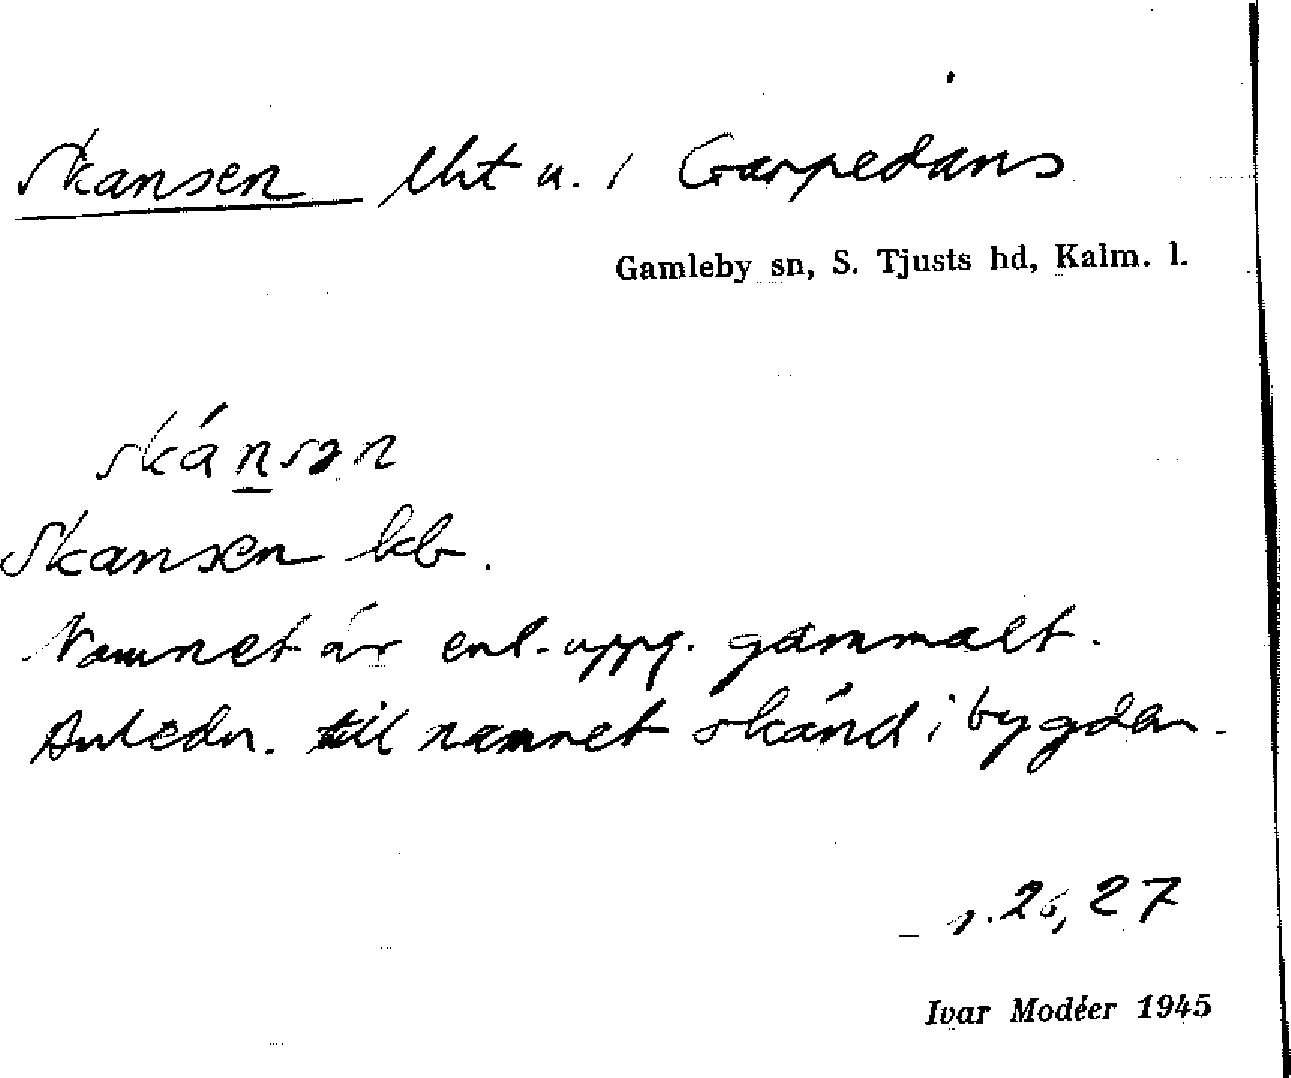 Skansen lht u. / Garpedans
Gamleby sn, S. Tjusts hd, Kalm. l.
skánsən
Skansen kb.
Namnet är enl. uppg. gammalt.
Anledn. till namnet okänd i bygden.
s. 26, 27
Ivar Modéer 1945